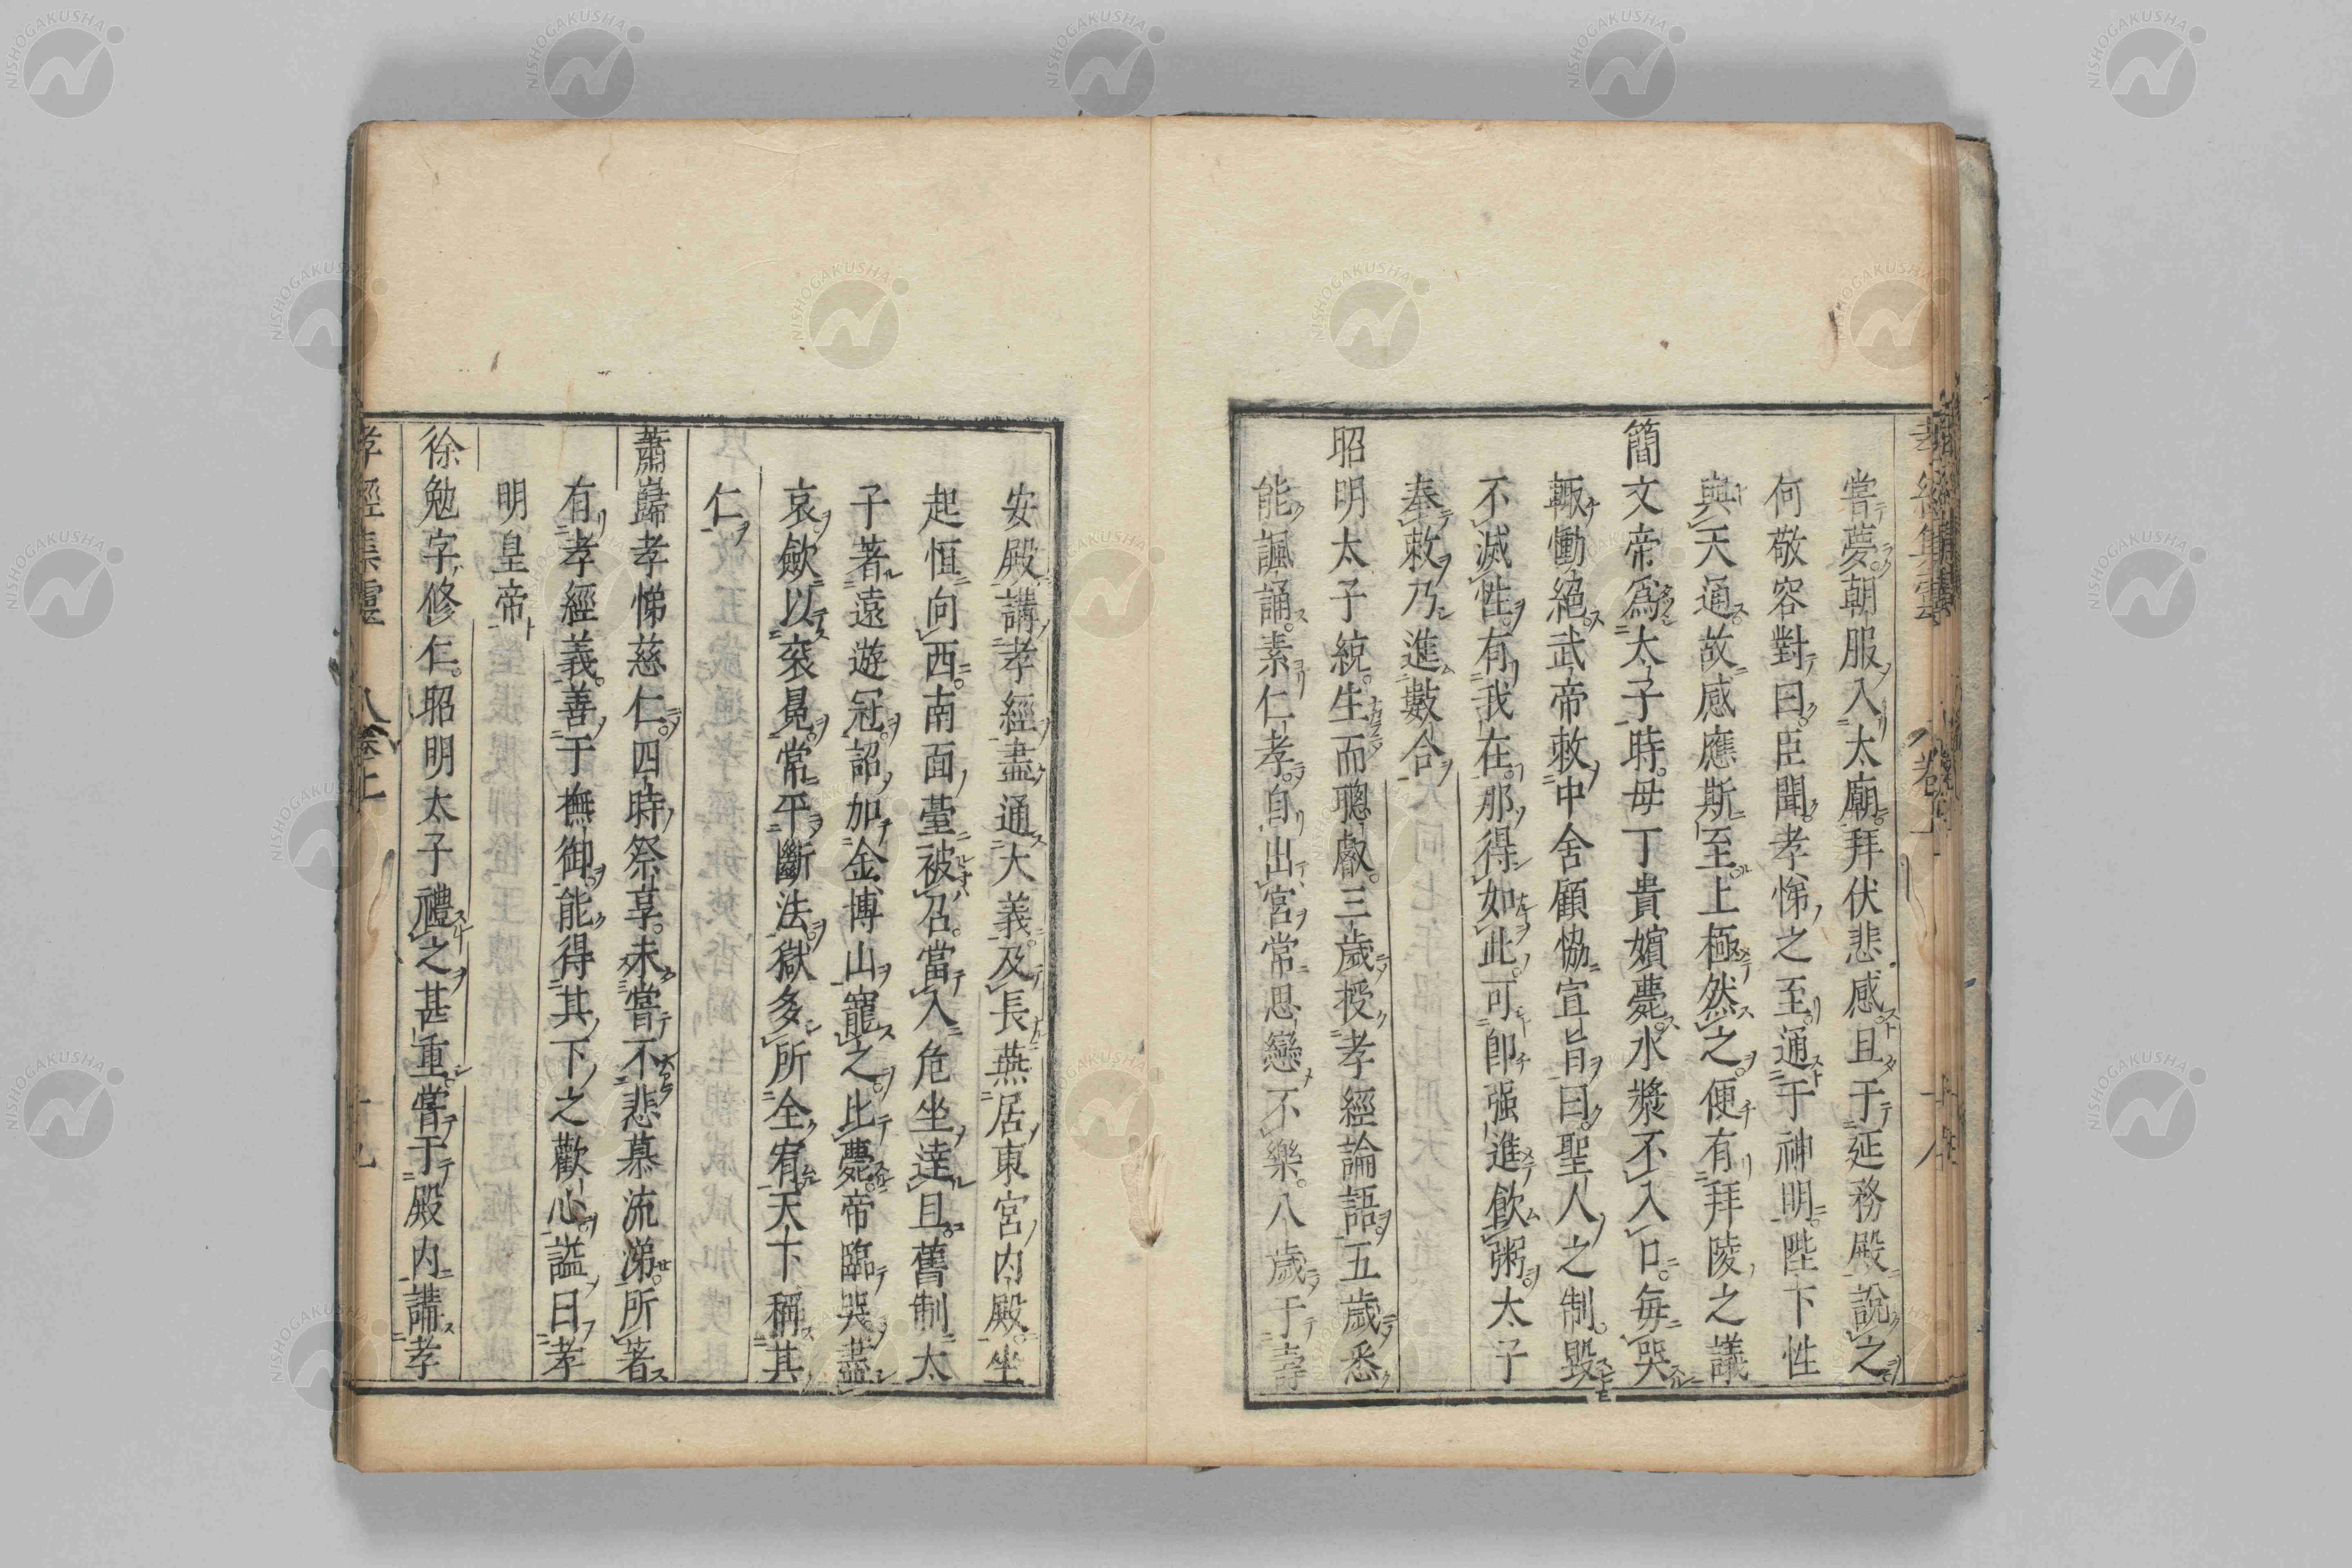 嘗夢朝服入太廟拜伏悲感且于延務殿說之
何敬容對曰臣聞孝悌之至通于神明陛下性
與天通故感應斯至上極然之便有拜陵之議
簡文帝爲太子時母丁貴嬪薨水漿不入口每哭
輙慟絕武帝敕中舍顧協宣旨曰聖人之制毀
不滅性有我在那得如此可卽强進飮粥太子
奉敕乃進數合
昭明太子統生而聰叡三歲授孝經論語五歲悉
能諷誦素仁孝自出宮常思戀不樂八歲于壽
安殿講孝經盡通大義及長燕居東宮內殿坐
起恒向西南面臺被召當入危坐達旦舊制太
子著遠遊冠詔加金博山寵之比薨帝臨哭盡
哀歛以衮冕常平斷法獄多所全宥天下稱其
仁
蕭巋孝悌慈仁四時祭享未嘗不悲慕流涕所著
有孝經義善于撫御能得其下之歡心謚曰孝
明皇帝
徐勉字修仁昭明太子禮之甚重嘗于殿內講孝
孝經集靈 卷上
NISHOGAKUSHA